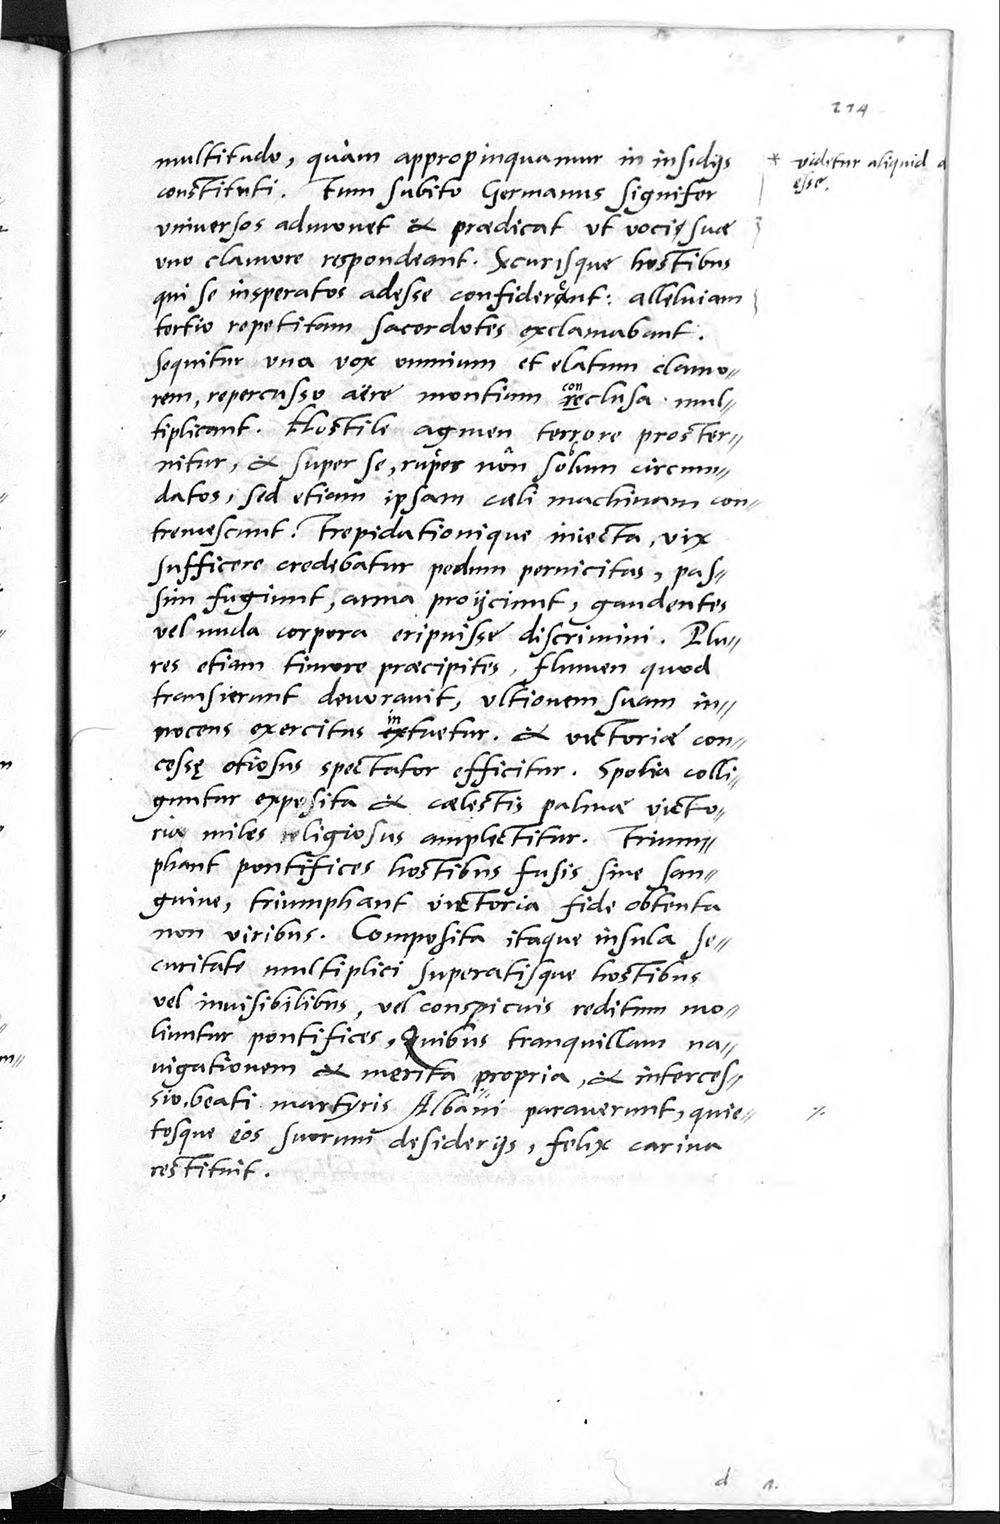 274
multitudo, quàm appropinquamur in insidijs
constituti. Tum subito Germanus signifer
vniversos admonet & prædicat vt vocis suæ
vno clamore respondeant. Securisque hostibus
qui se insperatos adesse confiderent: alleluiam
tertio repetitam sacerdotes exclamabant.
sequitur vna vox omnium et elatum clamo„
rem, repercusso aëre montium reclusa mul„
con
tiplicant. Hostile agmen terrore proster„
nitur, & super se, rupes non solum circum„
datos, sed etiam ipsam cæli machinam con„
tremescunt. Trepidationique iniecta, vix
sufficere credebatur pedum pernicitas, pas„
sim fugiunt, arma proijciunt, gaudentes
vel nuda corpora eripuisse discrimini. Plu„
res etiam timore præcipites, flumen quod
transierunt devoravit, vltionem suam in„
nocens exercitus extuetur. & victoriæ con„
in
cessę otiosus spectator efficitur. Spolia colli„
guntur exposita & cælestis palmæ victo„
riæ miles religiosus amplectitur. Trium„
phant pontifices hostibus fusis sine san„
guine, triumphant victoria fide obtenta
non viribus. Composita itaque insula se„
curitate multiplici superatisque hostibus
vel invisibilibus, vel conspicuis reditum mo„
liuntur pontifices, Quibus tranquillam na„
vigationem & merita propria, & interces„
sio beati martyris Albani paraverunt, quie„
tosque eos suorum desiderijs, felix carina
restituit.
* viditur aliquid
esse.
d